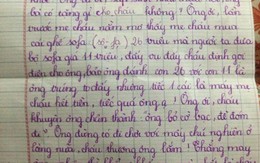 bố có trúng gì cho cháu không! Ông ơi, lần
trước mẹ cháu nằm mơ thấy mẹ cháu mua
cái ghế sofa (xô pha) 26 triệu mà người ta đưa
bộ sofa 11 triệu, đấy cụ dạy cháu định gọi
điện cho ông, bảo ông đánh con 26 với con 11 là
ông trúng to đấy nhưng tức 1 cái là máy mẹ
cháu hết tiền, tức quá ông ạ! Ông ơi, cháu
khuyên ông chân thành: ông bỏ cờ bạc, đề đóm
đi. Ông đừng có đi chơi với mấy chú nghiện ở
làng nữa, cháu thương ông lắm! Chẳng may